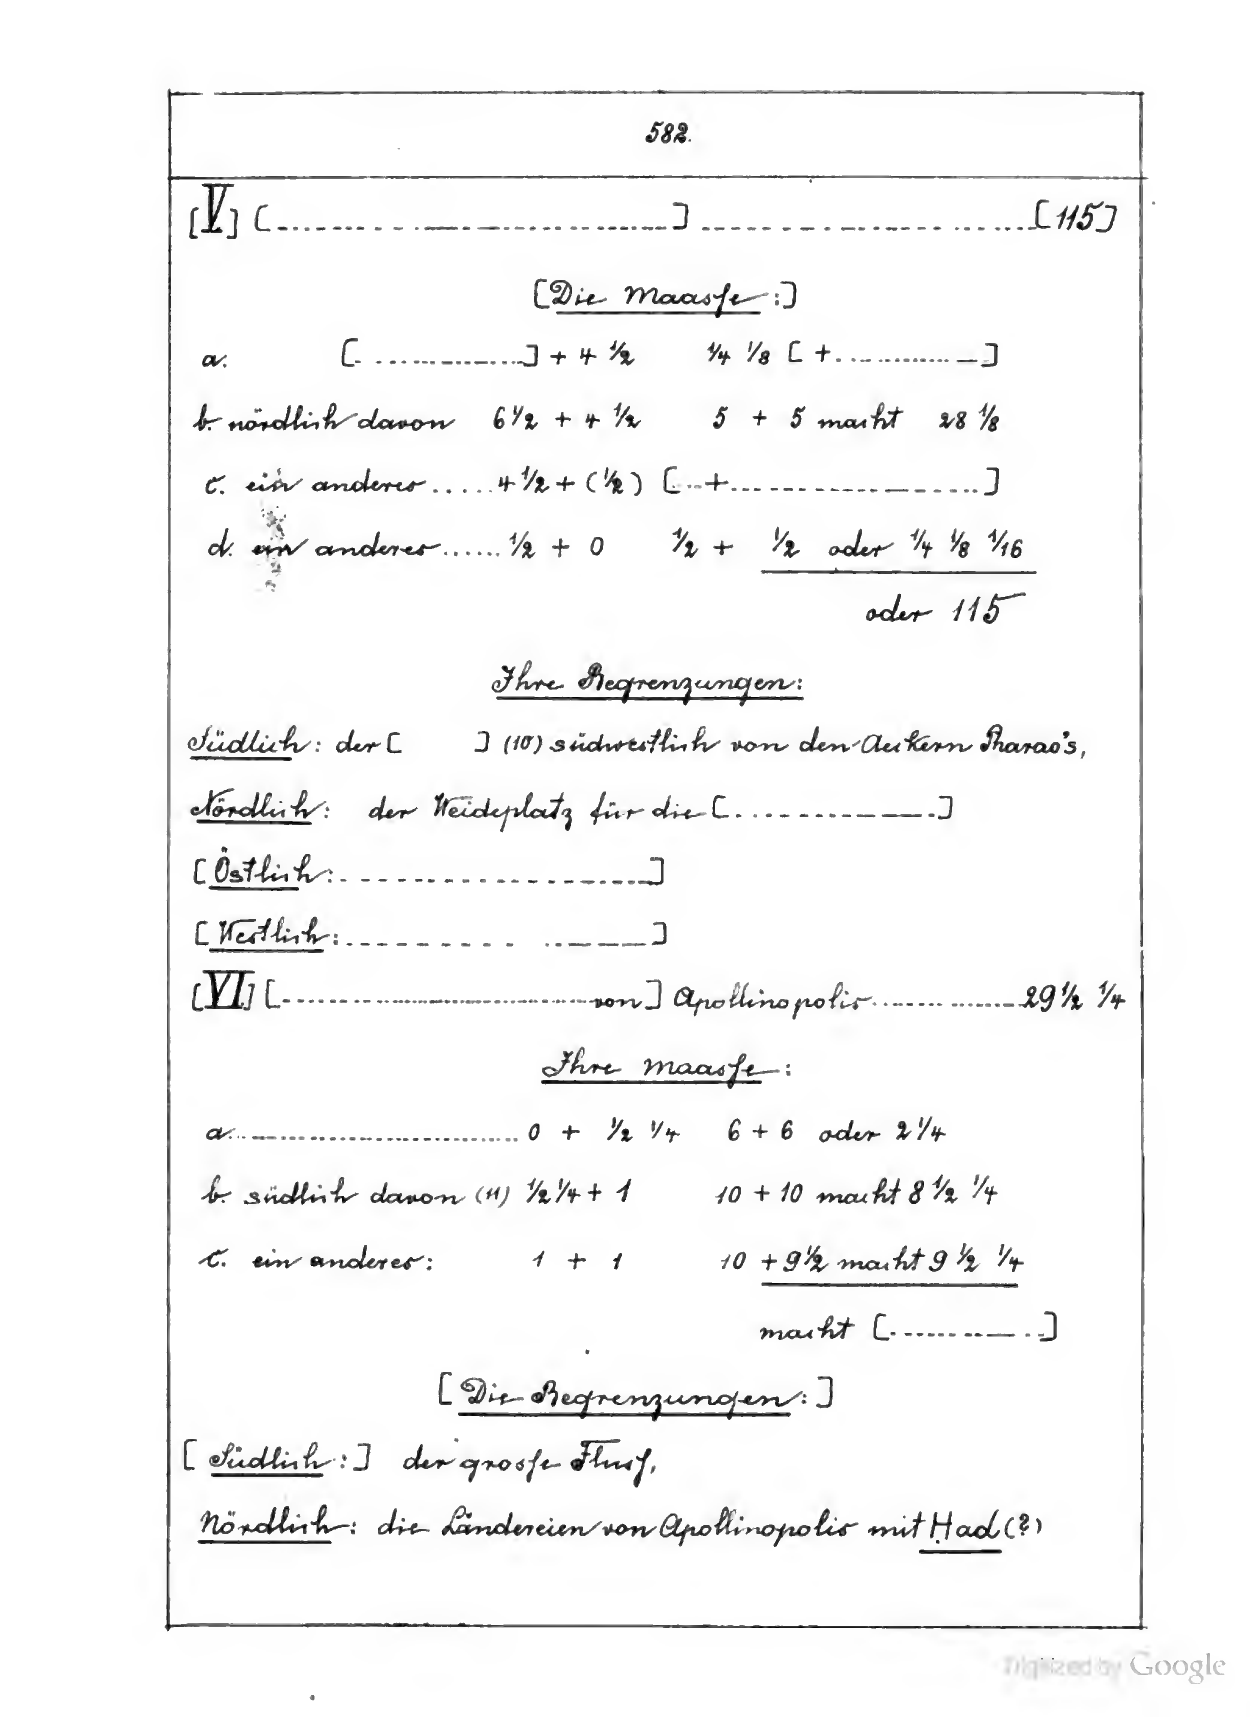 582.
[V] [..............................] ..............................[115]
[Die Maasse:]
a. [...............] + 4 ½ ¼ ⅛ [ + ...............]
b. nördlich davon 6½ + 4 ½ 5 + 5 macht 28 ⅛
c. ein anderes.....4½ + (½) [...+...................]
d. ein anderes......½ + 0 ½ + ½ oder ¼ ⅛ 1/16
oder 115
Ihre Begrenzungen:
Südlich: der [ ] (10) südwestlich von den Aeckern Pharao's,
Nördlich: der Weideplatz für die [...............]
[Östlich: ....................]
[Westlich: ....................]
[VI] [..............................von] Apollinopolis...............29½ ¼
Ihre Maasse:
a...............................0 + ½ ¼ 6 + 6 oder 2¼
b. südlich davon (11) ½ ¼ + 1 10 + 10 macht 8 ½ ¼
c. ein anderes: 1 + 1 10 + 9½ macht 9 ½ ¼
macht [...............]
[Die Begrenzungen:]
[Südlich:] der grosse Fluss,
Nördlich: die Ländereien von Apollinopolis mit Ḥad (?)
Digitized by Google